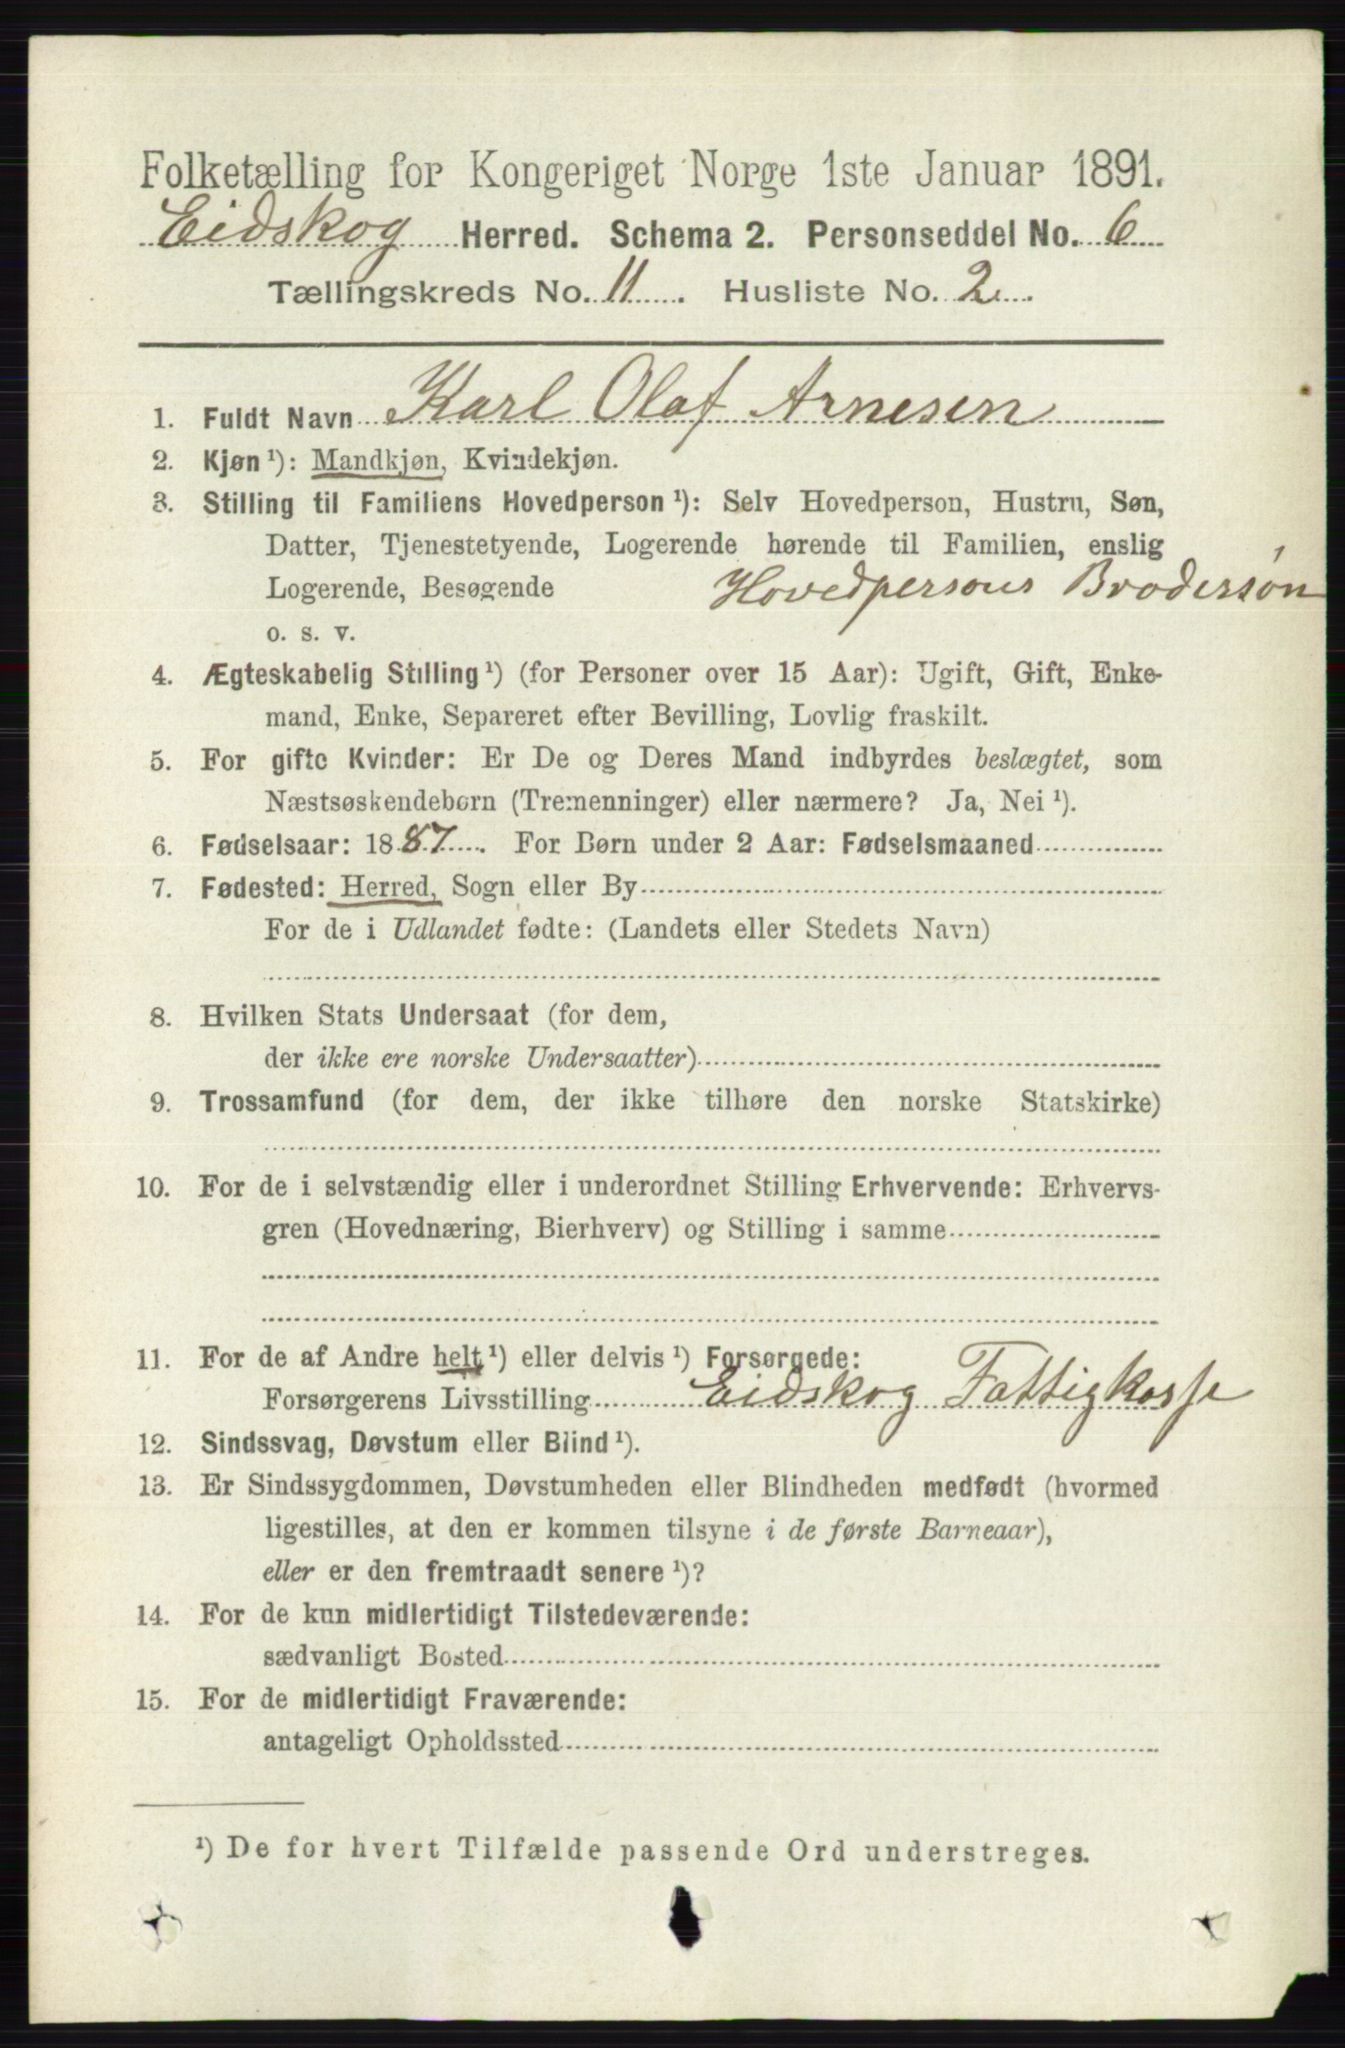 Folketælling for Kongeriget Norge 1ste Januar 1891.
Eidskog Herred. Schema 2. Personseddel No. 6
Tællingskreds No. 11. Husliste No. 2.
1. Fuldt Navn Karl Olaf Arnesen
2. Kjøn ¹): Mandkjøn, Kvindekjøn.
3. Stilling til Familiens Hovedperson ¹): Selv Hovedperson, Hustru, Søn,
Datter, Tjenestetyende, Logerende hørende til Familien, enslig
Logerende, Besøgende Hovedpersons Brodersøn
o. s. v.
4. Ægteskabelig Stilling ¹) (for Personer over 15 Aar): Ugift, Gift, Enke-
mand, Enke, Separeret efter Bevilling, Lovlig fraskilt.
5. For gifte Kvinder: Er De og Deres Mand indbyrdes beslægtet, som
Næstsøskendebørn (Tremenninger) eller nærmere? Ja, Nei ¹).
6. Fødselsaar: 1887. For Børn under 2 Aar: Fødselsmaaned
7. Fødested: Herred, Sogn eller By
For de i Udlandet fødte: (Landets eller Stedets Navn)
8. Hvilken Stats Undersaat (for dem,
der ikke ere norske Undersaatter)
9. Trossamfund (for dem, der ikke tilhøre den norske Statskirke)
10. For de i selvstændig eller i underordnet Stilling Erhvervende: Erhvervs-
gren (Hovednæring, Bierhverv) og Stilling i samme
11. For de af Andre helt ¹) eller delvis ¹) Forsørgede:
Forsørgerens Livsstilling Eidskog Fattigkasse
12. Sindssvag, Døvstum eller Blind ¹).
13. Er Sindssygdommen, Døvstumheden eller Blindheden medfødt (hvormed
ligestilles, at den er kommen tilsyne i de første Barneaar),
eller er den fremtraadt senere ¹)?
14. For de kun midlertidigt Tilstedeværende:
sædvanligt Bosted
15. For de midlertidigt Fraværende:
antageligt Opholdssted
¹) De for hvert Tilfælde passende Ord understreges.